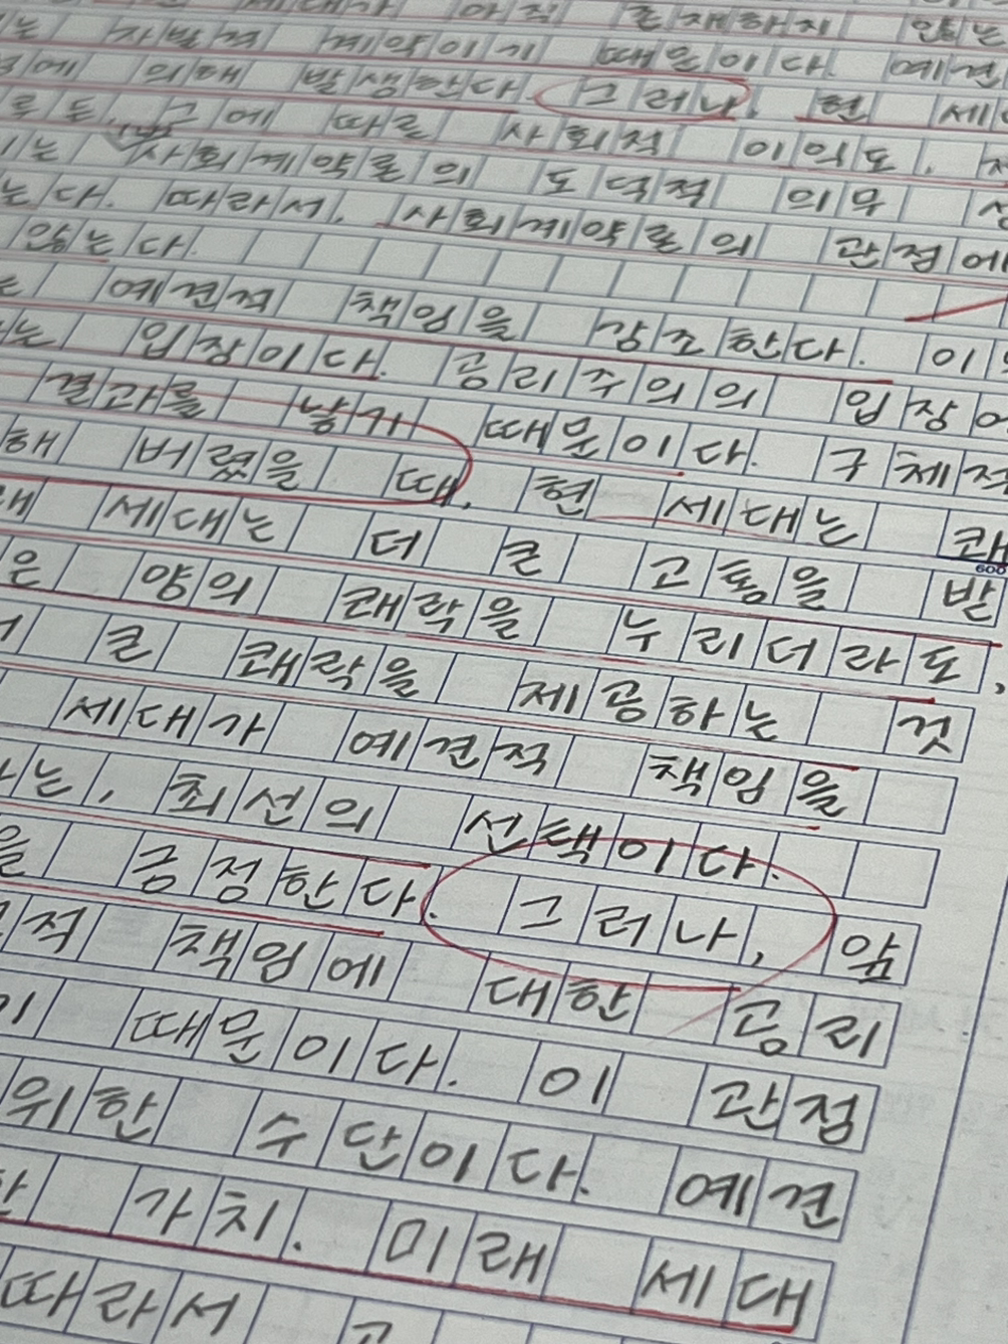 아직 존재하지 않는
는 자발적 계약이기 때문이다. 예견
에 의해 발생한다. 그러나, 현 세
로든, 그에 따른 사회적 이익도,
는 사회계약론의 도덕적 의무
는다. 따라서, 사회계약론의 관점에
않는다.
는 예견적 책임을 강조한다. 이
는 입장이다. 공리주의의 입장에
결과를 낳기 때문이다. 구체적
해 버렸을 때, 현 세대는 쾌
래 세대는 더 큰 고통을 받
600
은 양의 쾌락을 누리더라도,
더 큰 쾌락을 제공하는 것
세대가 예견적 책임을
나는, 최선의 선택이다.
을 긍정한다. 그러나, 앞
견적 책임에 대한 공리
이 때문이다. 이 관점
위한 수단이다. 예견
한 가치. 미래 세대
따라서